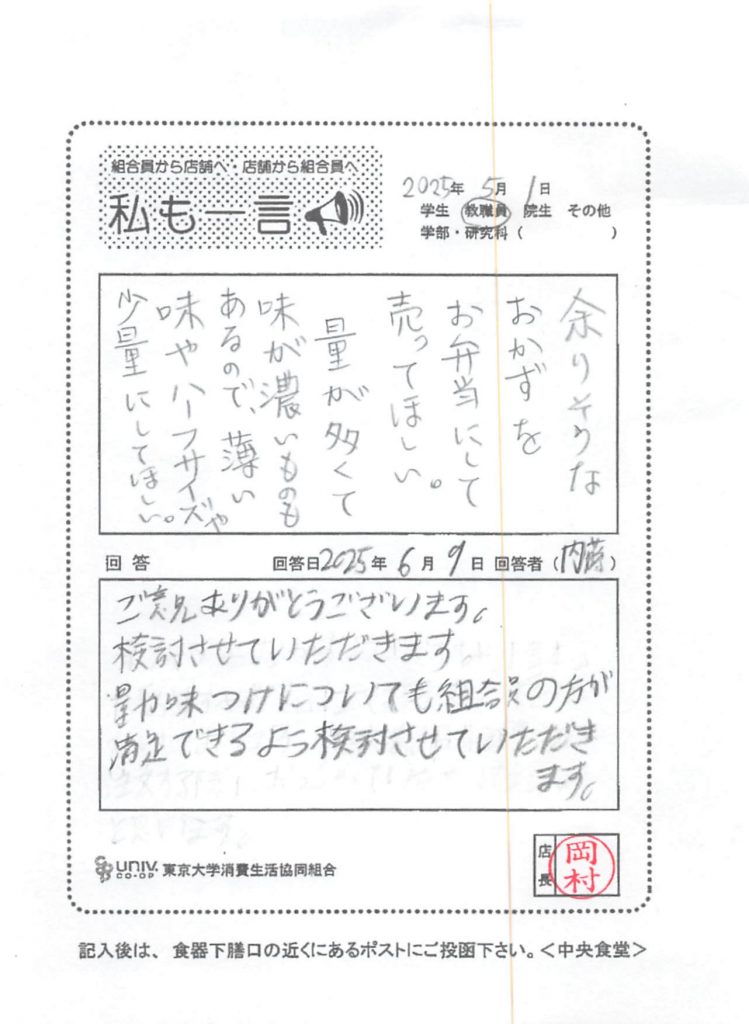 組合員から店舗へ・店舗から組合員へ
私も一言
2025年 5月 1日
学生 教職員 院生 その他
学部・研究科（ ）
余りそうな
おかずを
お弁当にして
売ってほしい。
量が多くて
味が濃いものも
あるので、薄い
味やハーフサイズや
少量にしてほしい。
回答 回答日2025年 6月 9日 回答者（内藤）
ご意見ありがとうございます。
検討させていただきます
量や味つけについても組合員の方が
満足できるよう検討させていただき
ます。
UNIV. CO-OP 東京大学消費生活協同組合
店長 岡村
記入後は、食器下膳口の近くにあるポストにご投函下さい。＜中央食堂＞